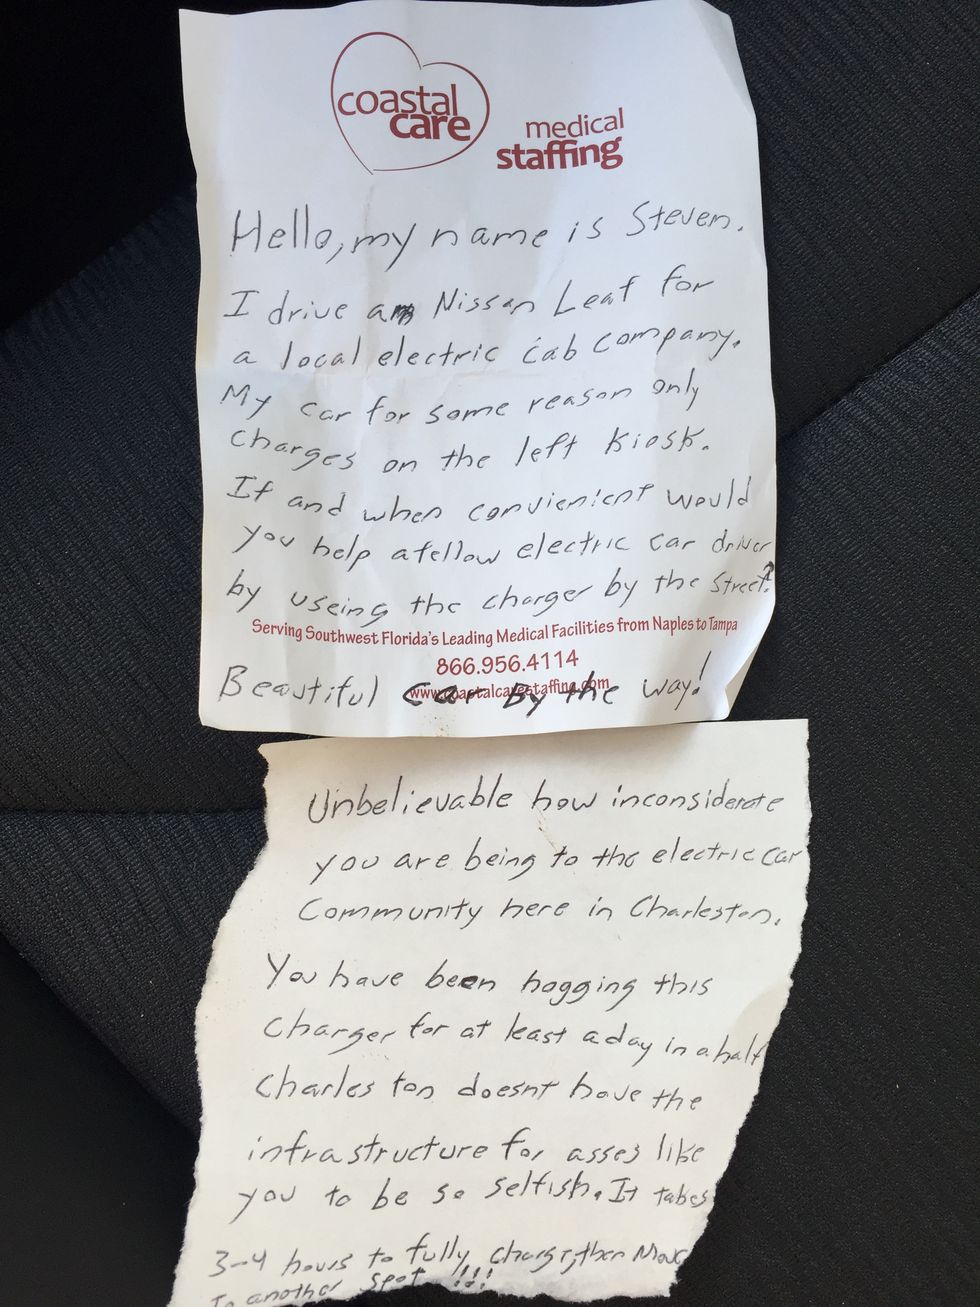 coastal
care
medical
staffing
Hello, my name is Steven.
I drive a Nissan Leaf for
a local electric cab company.
My car for some reason only
charges on the left kiosk.
If and when convienient would
you help a fellow electric car driver
by useing the charger by the street?
Serving Southwest Florida's Leading Medical Facilities from Naples to Tampa
866.956.4114
www.coastalcarestaffing.com
Beautiful car By the way!
Unbelievable how inconsiderate
you are being to the electric car
Community here in Charleston.
You have been hogging this
Charger for at least a day in a half
Charleston doesnt have the
infrastructure for asses like
you to be so selfish. It takes
3-4 hours to fully charge, then Move
To another spot !!!